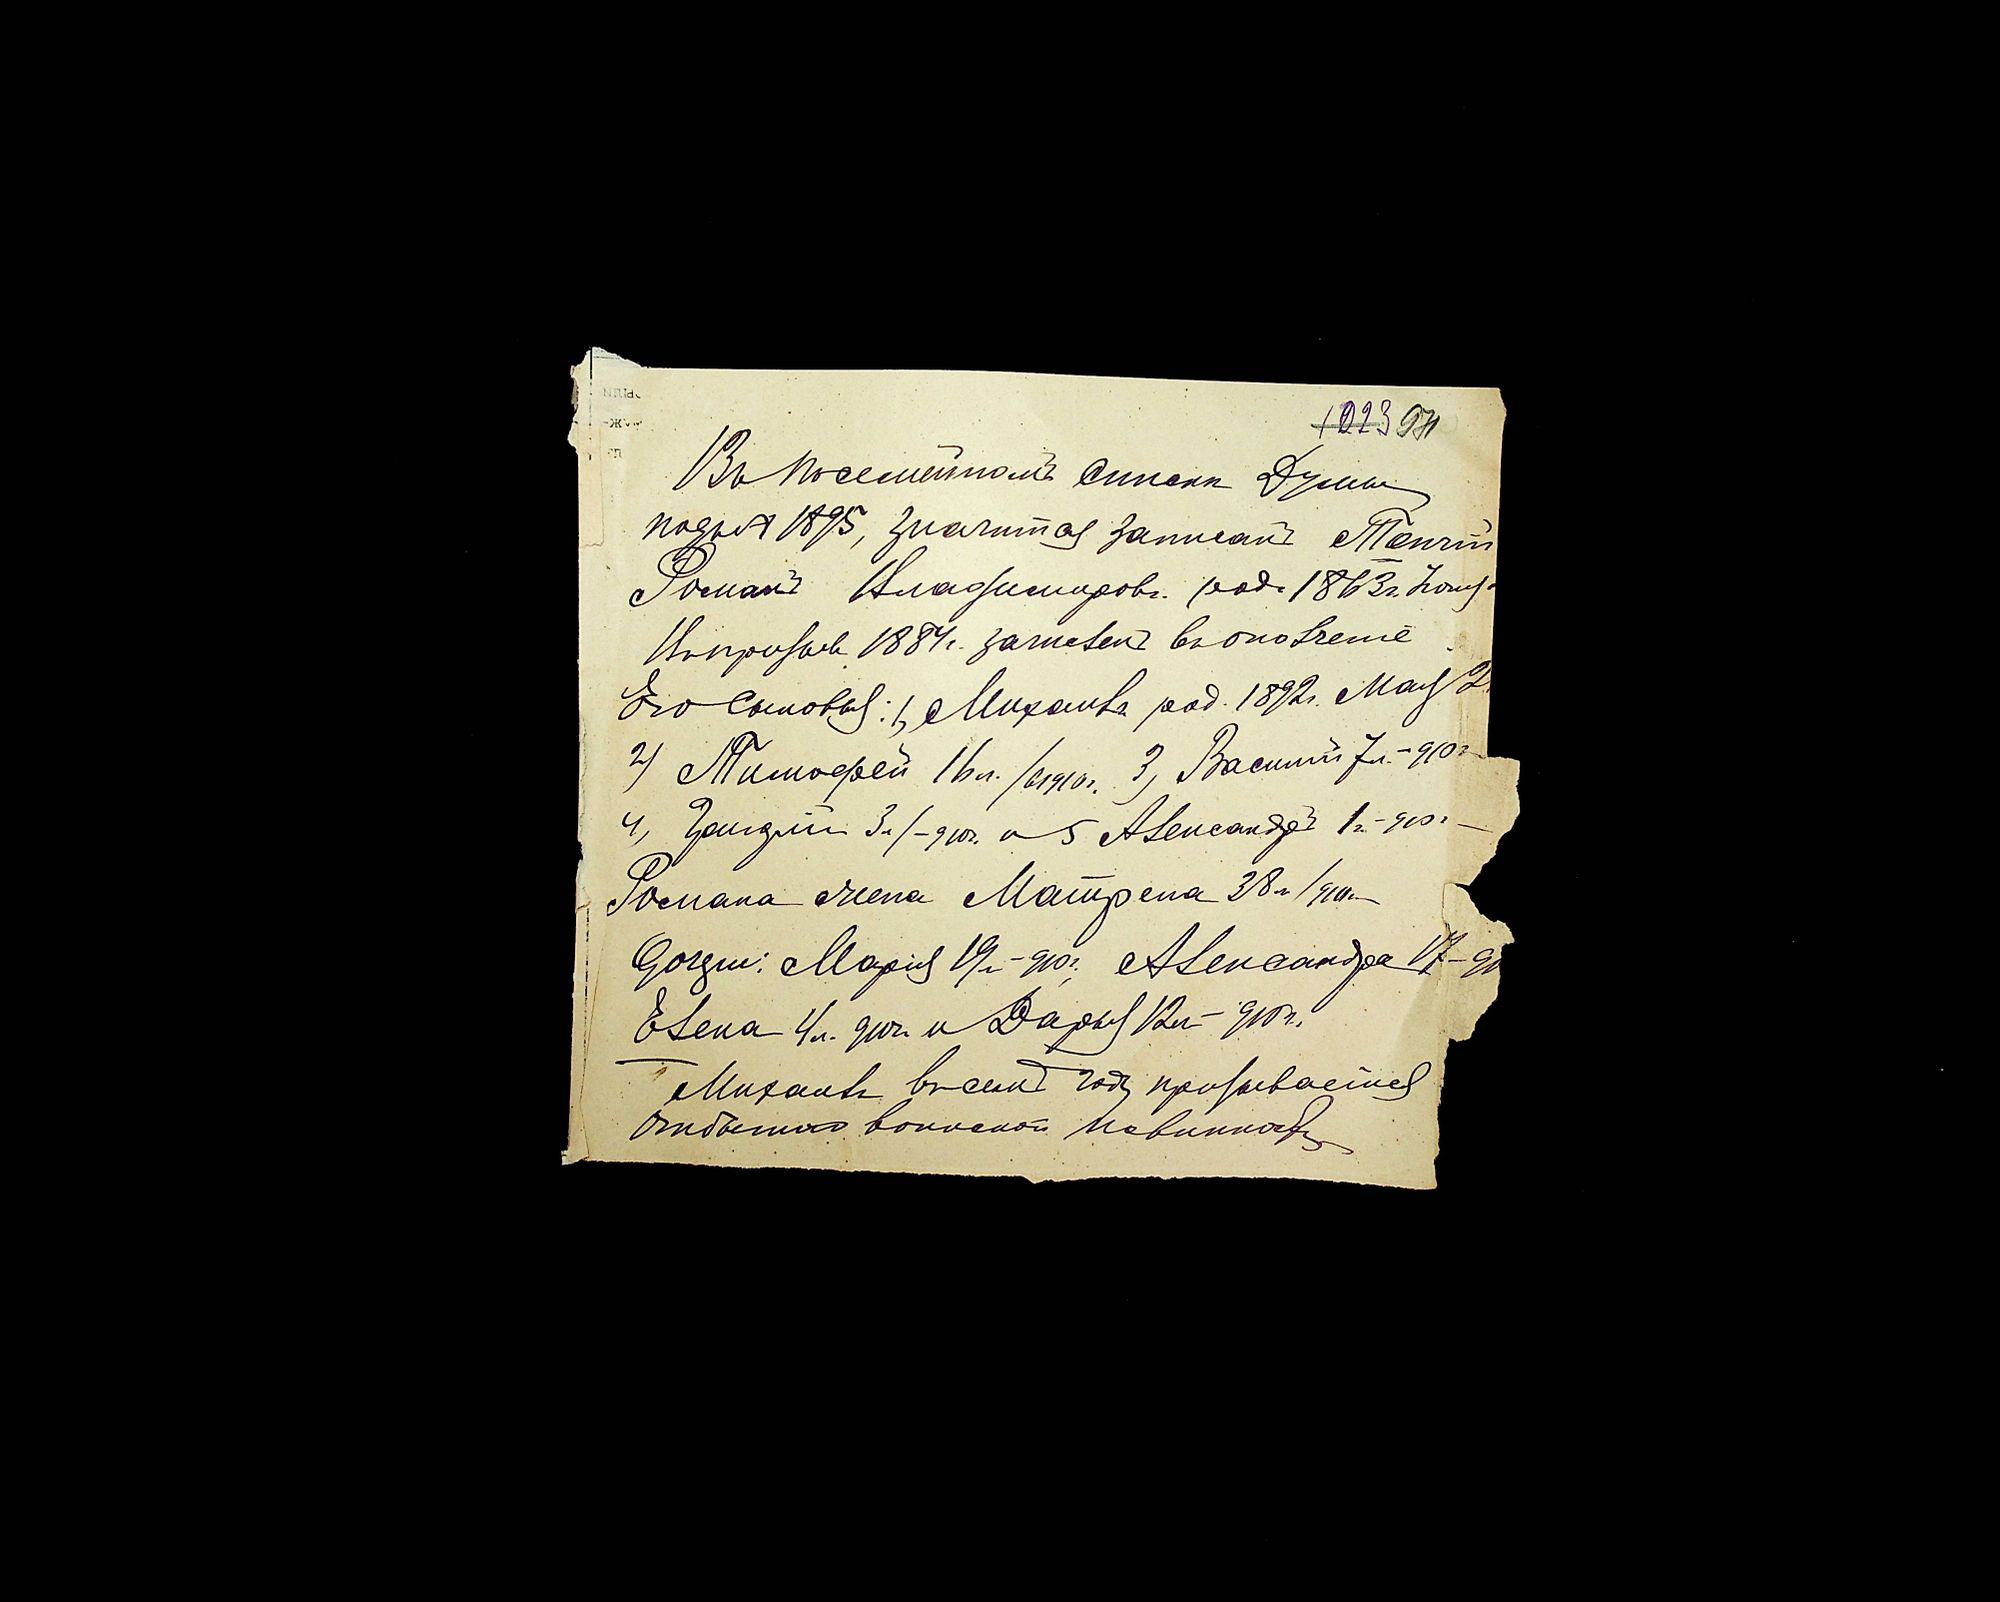 1023 971
Въ посемейномъ списки Думы
подъ № 1895, значится записанъ
Романъ Владимировъ род. 1863г.
Въ призывъ 1884г. зачисленъ въ ополчение
Его сыновья: 1, Михаилъ род. 1892г. Мая 2
2) Тимофей 16 л. /в 1910г. 3, Василий 7 л. - 910г
4, 3 л/-910г. и 5 Александръ 1г. - 910г -
Романа жена Матрена 38 л /910г.
дочери: Мария 19 л - 910г., Александра 17 - 91
Елена 4 л. 910г. и Дарья 12 л - 910г.
Михаилъ въ семъ году призывается
отбытию воинской повинности